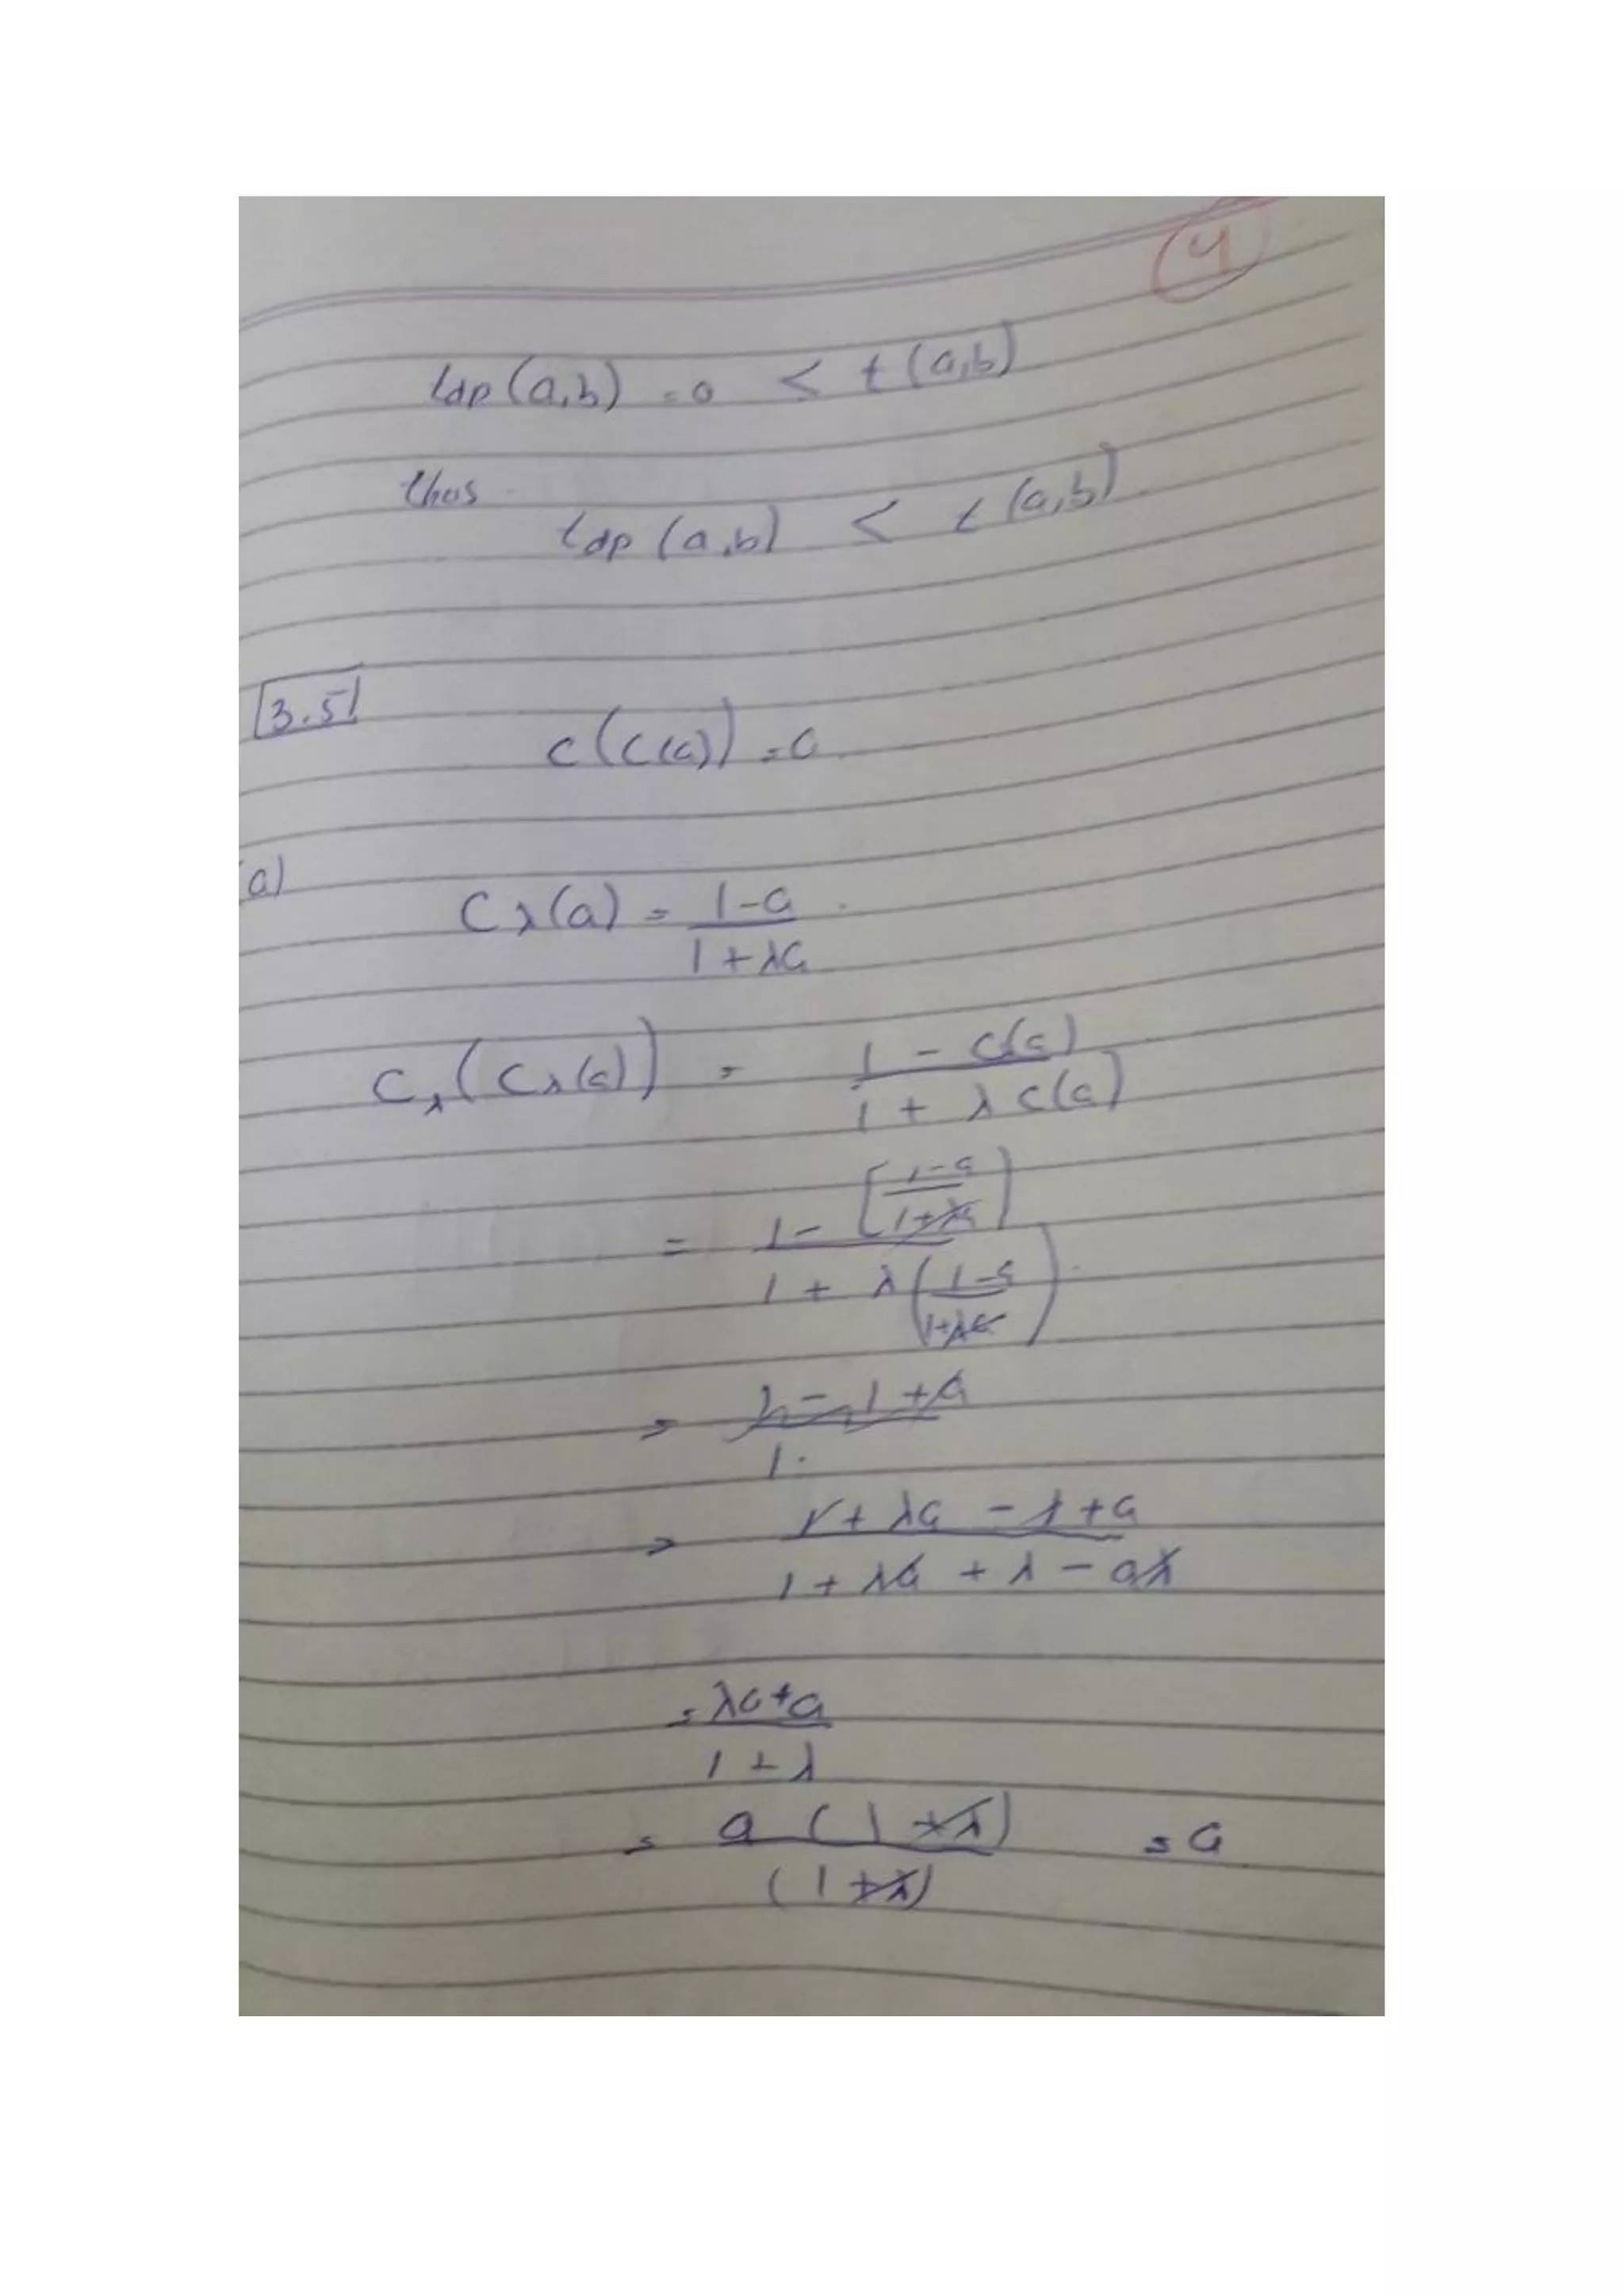 4
tdp(a,b) = 0 < t(a,b)
thus
tdp(a,b) < t(a,b).
3.5
c(c(a)) = a
a)
Cλ(a) = 1-a / 1+λa
Cλ(Cλ(a)) = 1 - c(a) / 1 + λ c(a)
= 1 - [1-a / 1+λa] / 1 + λ(1-a / 1+λa)
= 1 - 1 + a / 1.
= 1 + λa - 1 + a / 1 + λa + λ - aλ
= λa + a / 1 + λ
= a (1+λ) / (1+λ) = a